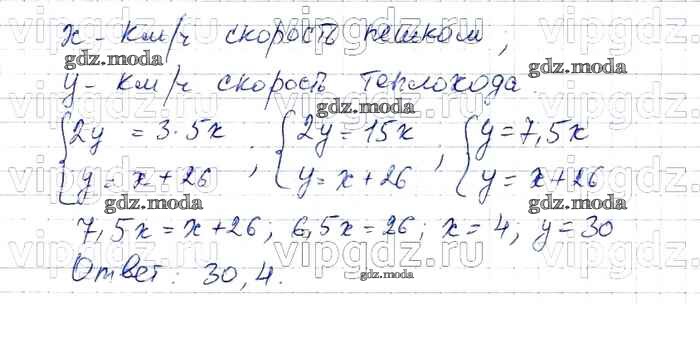 x - км/ч скорость пешком,
y - км/ч скорость теплохода.
{2y = 3·5x y = x + 26 ; {2y = 15x y = x + 26 ; {y = 7,5x y = x + 26
7,5x = x + 26; 6,5x = 26; x = 4; y = 30
Ответ: 30, 4.
vipgdz.com
gdz.moda